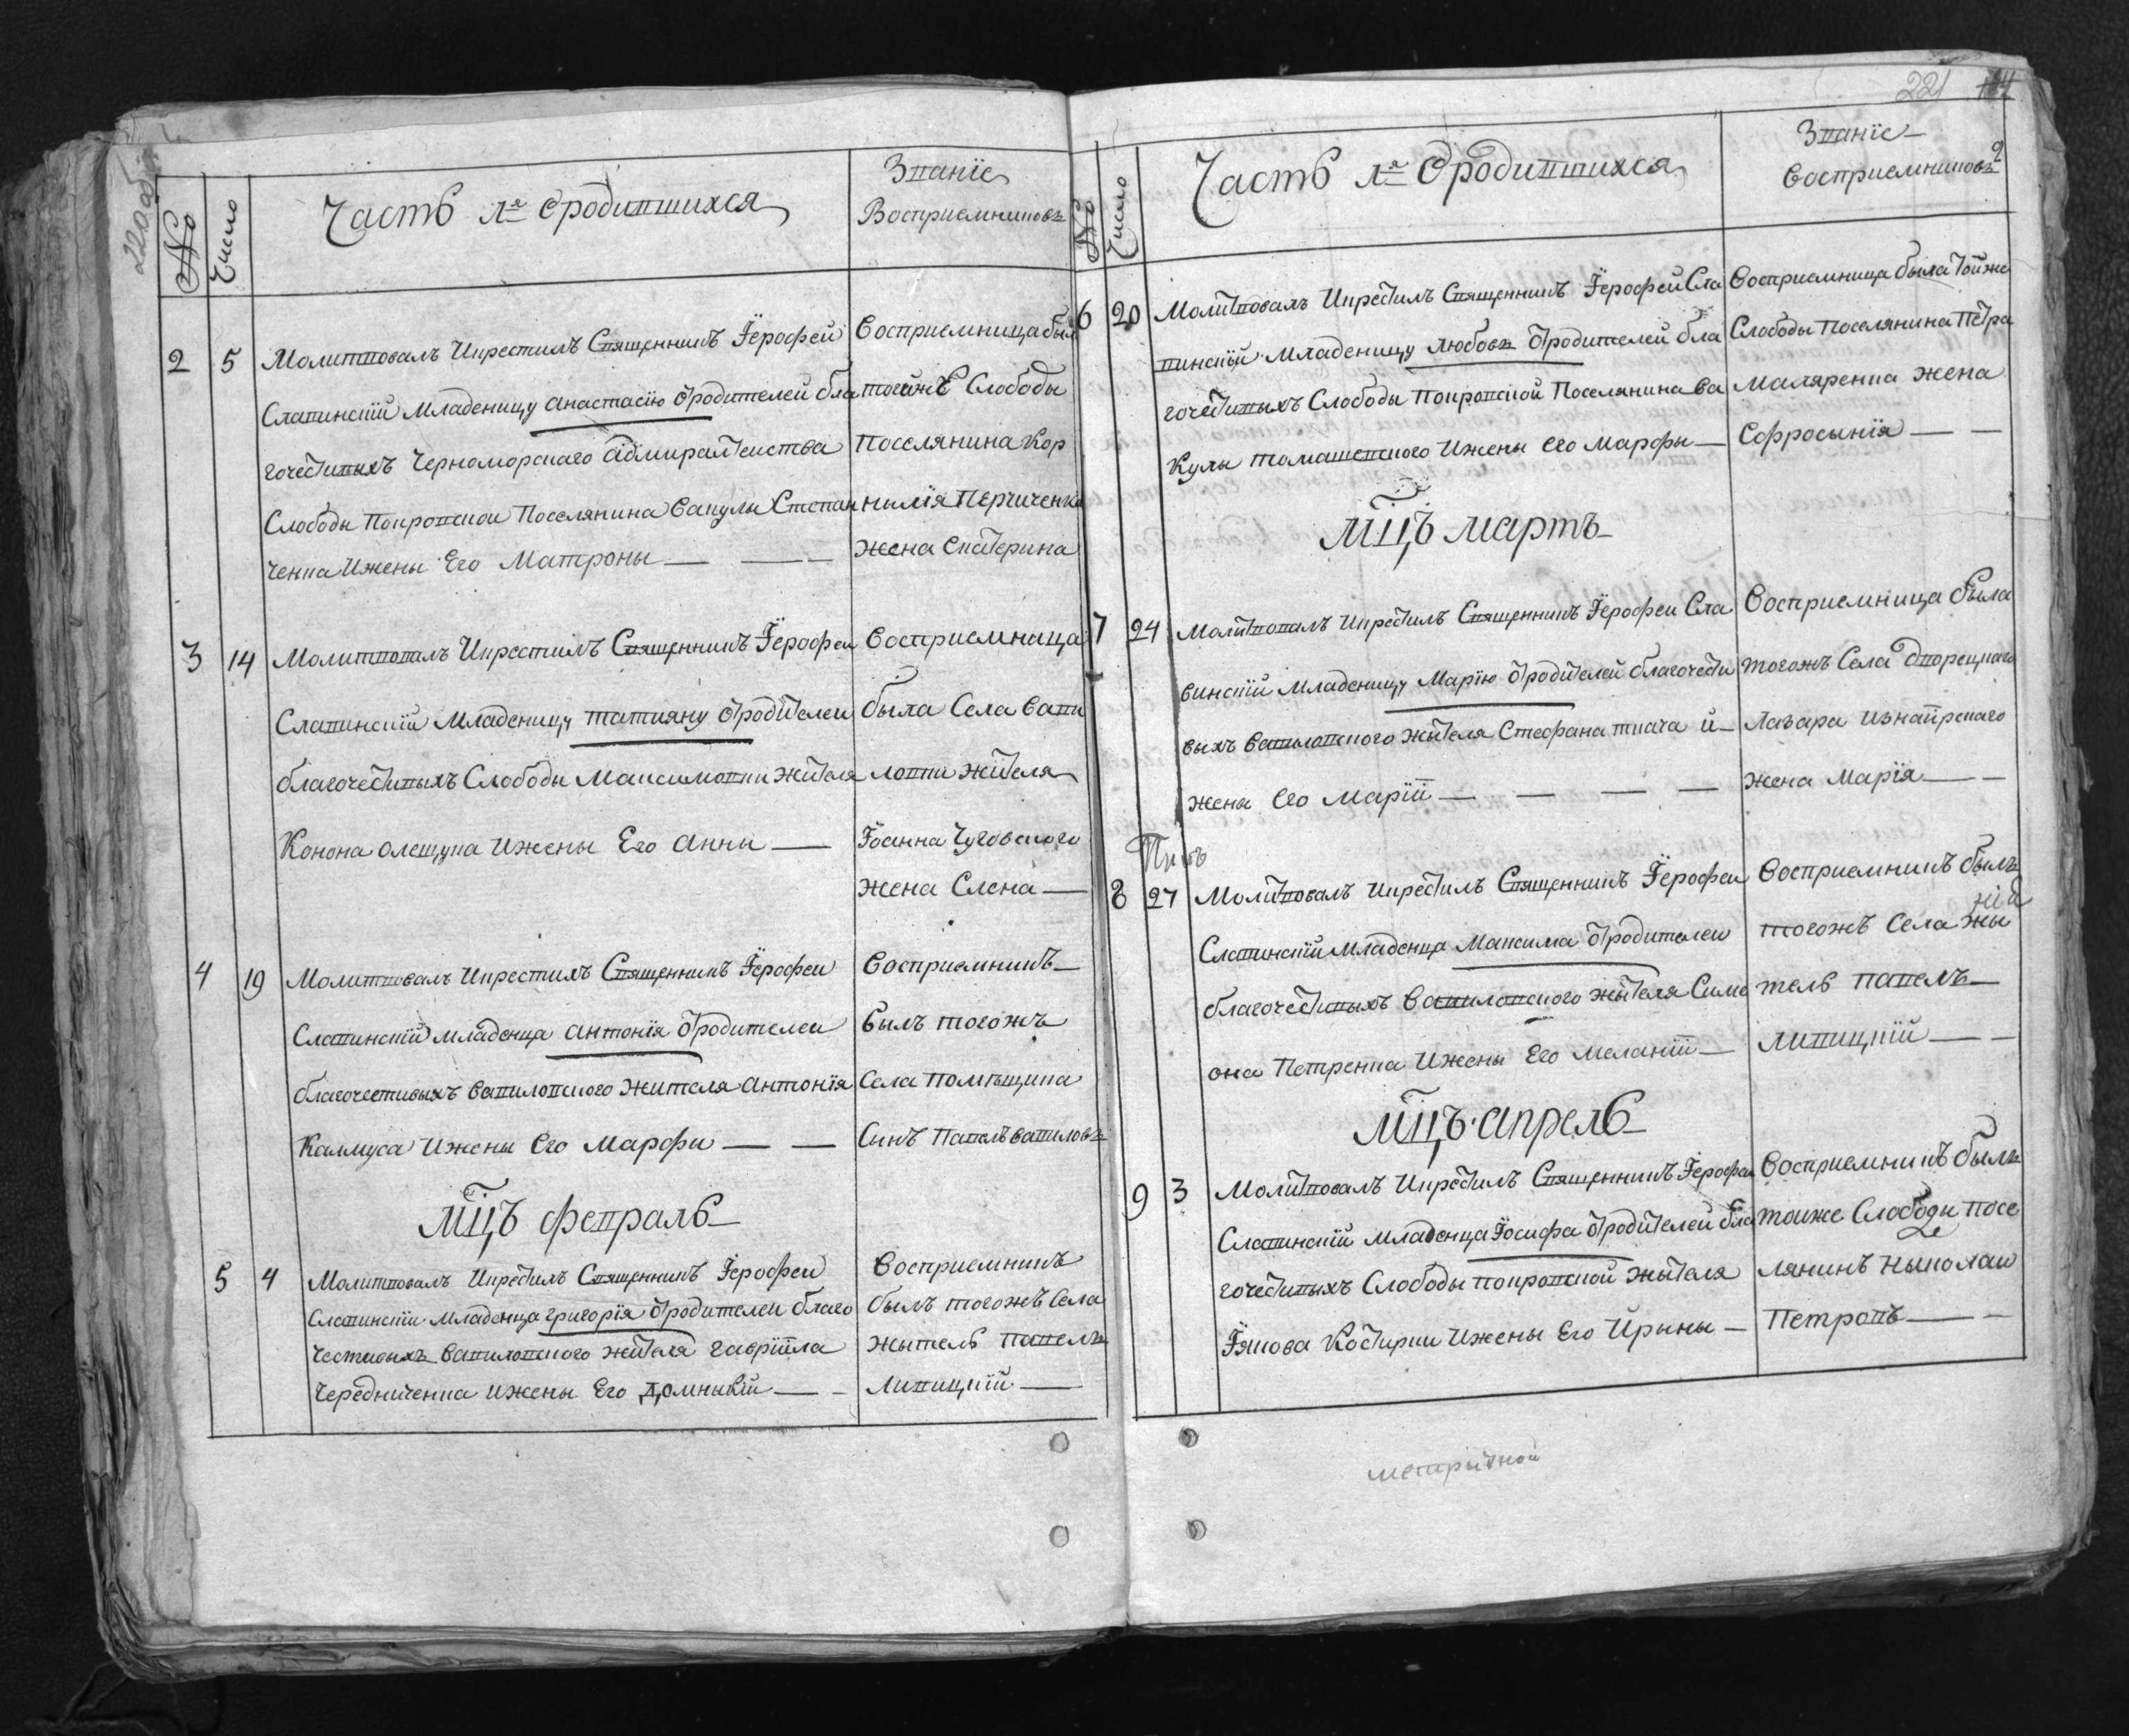 220 об
№
Число
Часть 1я о родившихся
Званіе
Восприемниковъ
2 5 Молитвовалъ Икрестилъ Священникъ Їерофей
Славинскій Младеницу Анастасію ѿ родителей бла
гочестивыхъ Черноморскаго Адмиралтеиства
Слободы Покровскои Поселянина Вакулы Степан
ченка Ижены Его Матроны — — —
Восприемница был
тоейжъ Слободы
Поселянина Кор
нилія Перчиченка
жена Екатерина
3 14 Молитвовалъ Икрестилъ Священникъ Їерофеи
Славинскій Младеницу Татияну ѿ родителеи
благочестивыхъ Слободы Максимовки жителя
Конона Олещука Ижены Его Анны —
Восприемница
была Села Вави
ловки жителя
Їоанна Чуговского
жена Елена —
4 19 Молитвовалъ Икрестилъ Священникъ Їерофеи
Славинскій младенца Антонія ѿ родителеи
благочестивыхъ Вавиловского жителя Антонія
Калмуса Ижены Его Марфы — —
Восприемникъ —
былъ тогожъ
Села помѣщика
Синъ Павелъ Вавиловъ
Мцъ февраль
5 4 Молитвовалъ Икрестилъ Священникъ Їерофеи
Славинскіи Младенца Григорія ѿ родителеи благо
честивыхъ Вавиловского жителя Гавріила
Чередниченка Ижены Его Домникіи — —
Восприемникъ
былъ тогожъ Села
жытель Павелъ
Липицкій —
221
№
Число
Часть 1я ѿ родившихся
Званіе
Восприемниковъ
2
6 20 Молитвовалъ Икрестилъ Священникъ Їерофей Сла
винскій Младеницу Любовь ѿ родителей бла
гочестивыхъ Слободы Покровской Поселянина Ва
кулы Томашевского Ижены Его Марфы —
Восприемница была тойже
Слободы Поселянина Петра
Маляренка жена
Ефросынія — —
Мцъ мартъ
7 24 Молитвовалъ Икрестилъ Священникъ Їерофеи Сла
винскій Младеницу Марію ѿ родителей благочести
выхъ Вавиловского жителя Стефана ткача и
жены Его Маріи — — — —
Восприемница была
тогожъ Села Дворецкаго
Лазара Изнаирскаго
жена Марія — —
8 27 Молитвовалъ Икрестилъ Священникъ Їерофеи
Славинскій младенца Максима ѿ родителеи
благочестивыхъ Вавиловского жителя Симе
она Петренка Ижены Его Меланіи —
Восприемникъ былъ
тогожъ Села жы
тель Павелъ —
Липицкій — —
Мцъ апрель
9 3 Молитвовалъ Икрестилъ Священникъ Їерофеи
Славинскій младенца Їосифа ѿ родителей бла
гочестивыхъ Слободы Покровской жителя
Їякова Костирки Ижены Его Ирыны —
Восприемникъ былъ
тоиже Слободы посе
лянинъ Ныколаи
Петровъ — —
метричной